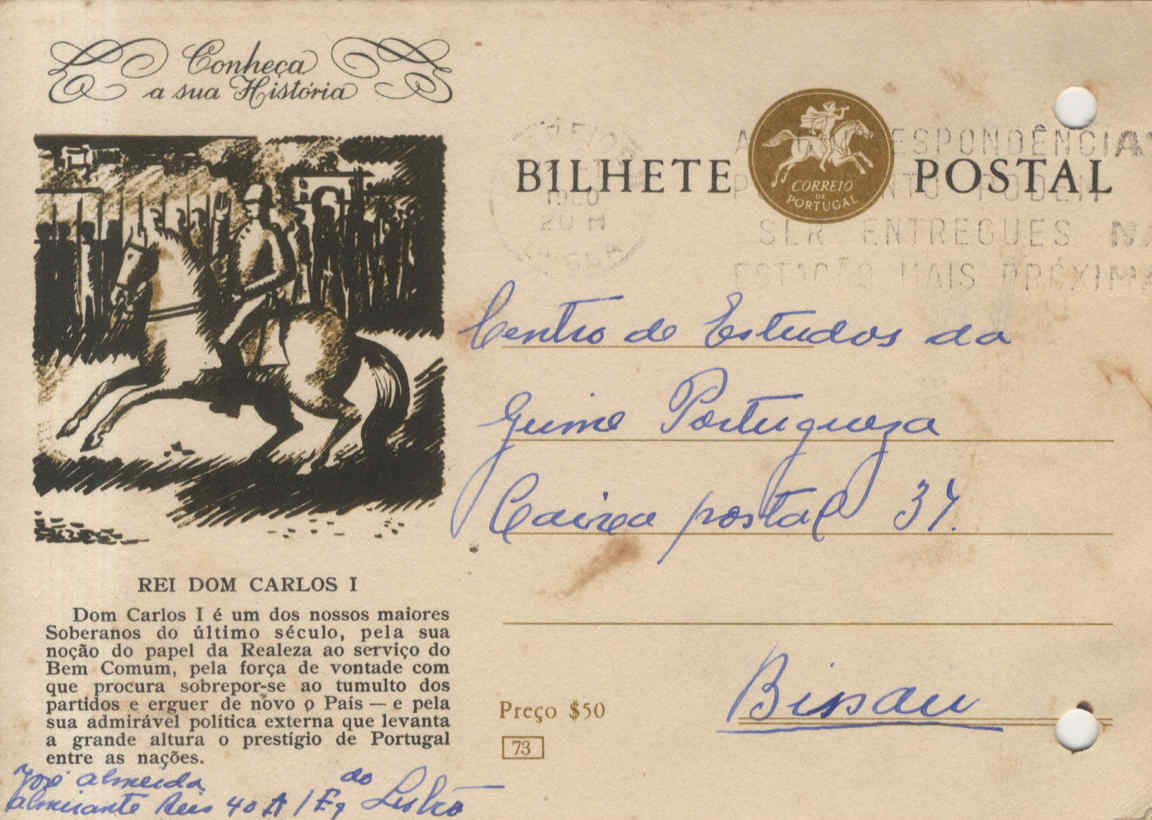 Conheça
a sua História
BILHETE POSTAL
CORREIO
DE
PORTUGAL
1960
20 H
SPONDÊNCIA
SER ENTREGUES NA
ESTAÇÃO MAIS PRÓXIMA
Centro de Estudos da
Guiné Portugueza
Caixa postal 37.
Bissau
REI DOM CARLOS I
Dom Carlos I é um dos nossos maiores
Soberanos do último século, pela sua
noção do papel da Realeza ao serviço do
Bem Comum, pela força de vontade com
que procura sobrepor-se ao tumulto dos
partidos e erguer de novo o País — e pela
sua admirável política externa que levanta
a grande altura o prestígio de Portugal
entre as nações.
Preço $50
73
José Almeida
Almirante Reis 40 A 1 Eq do Lisbôa